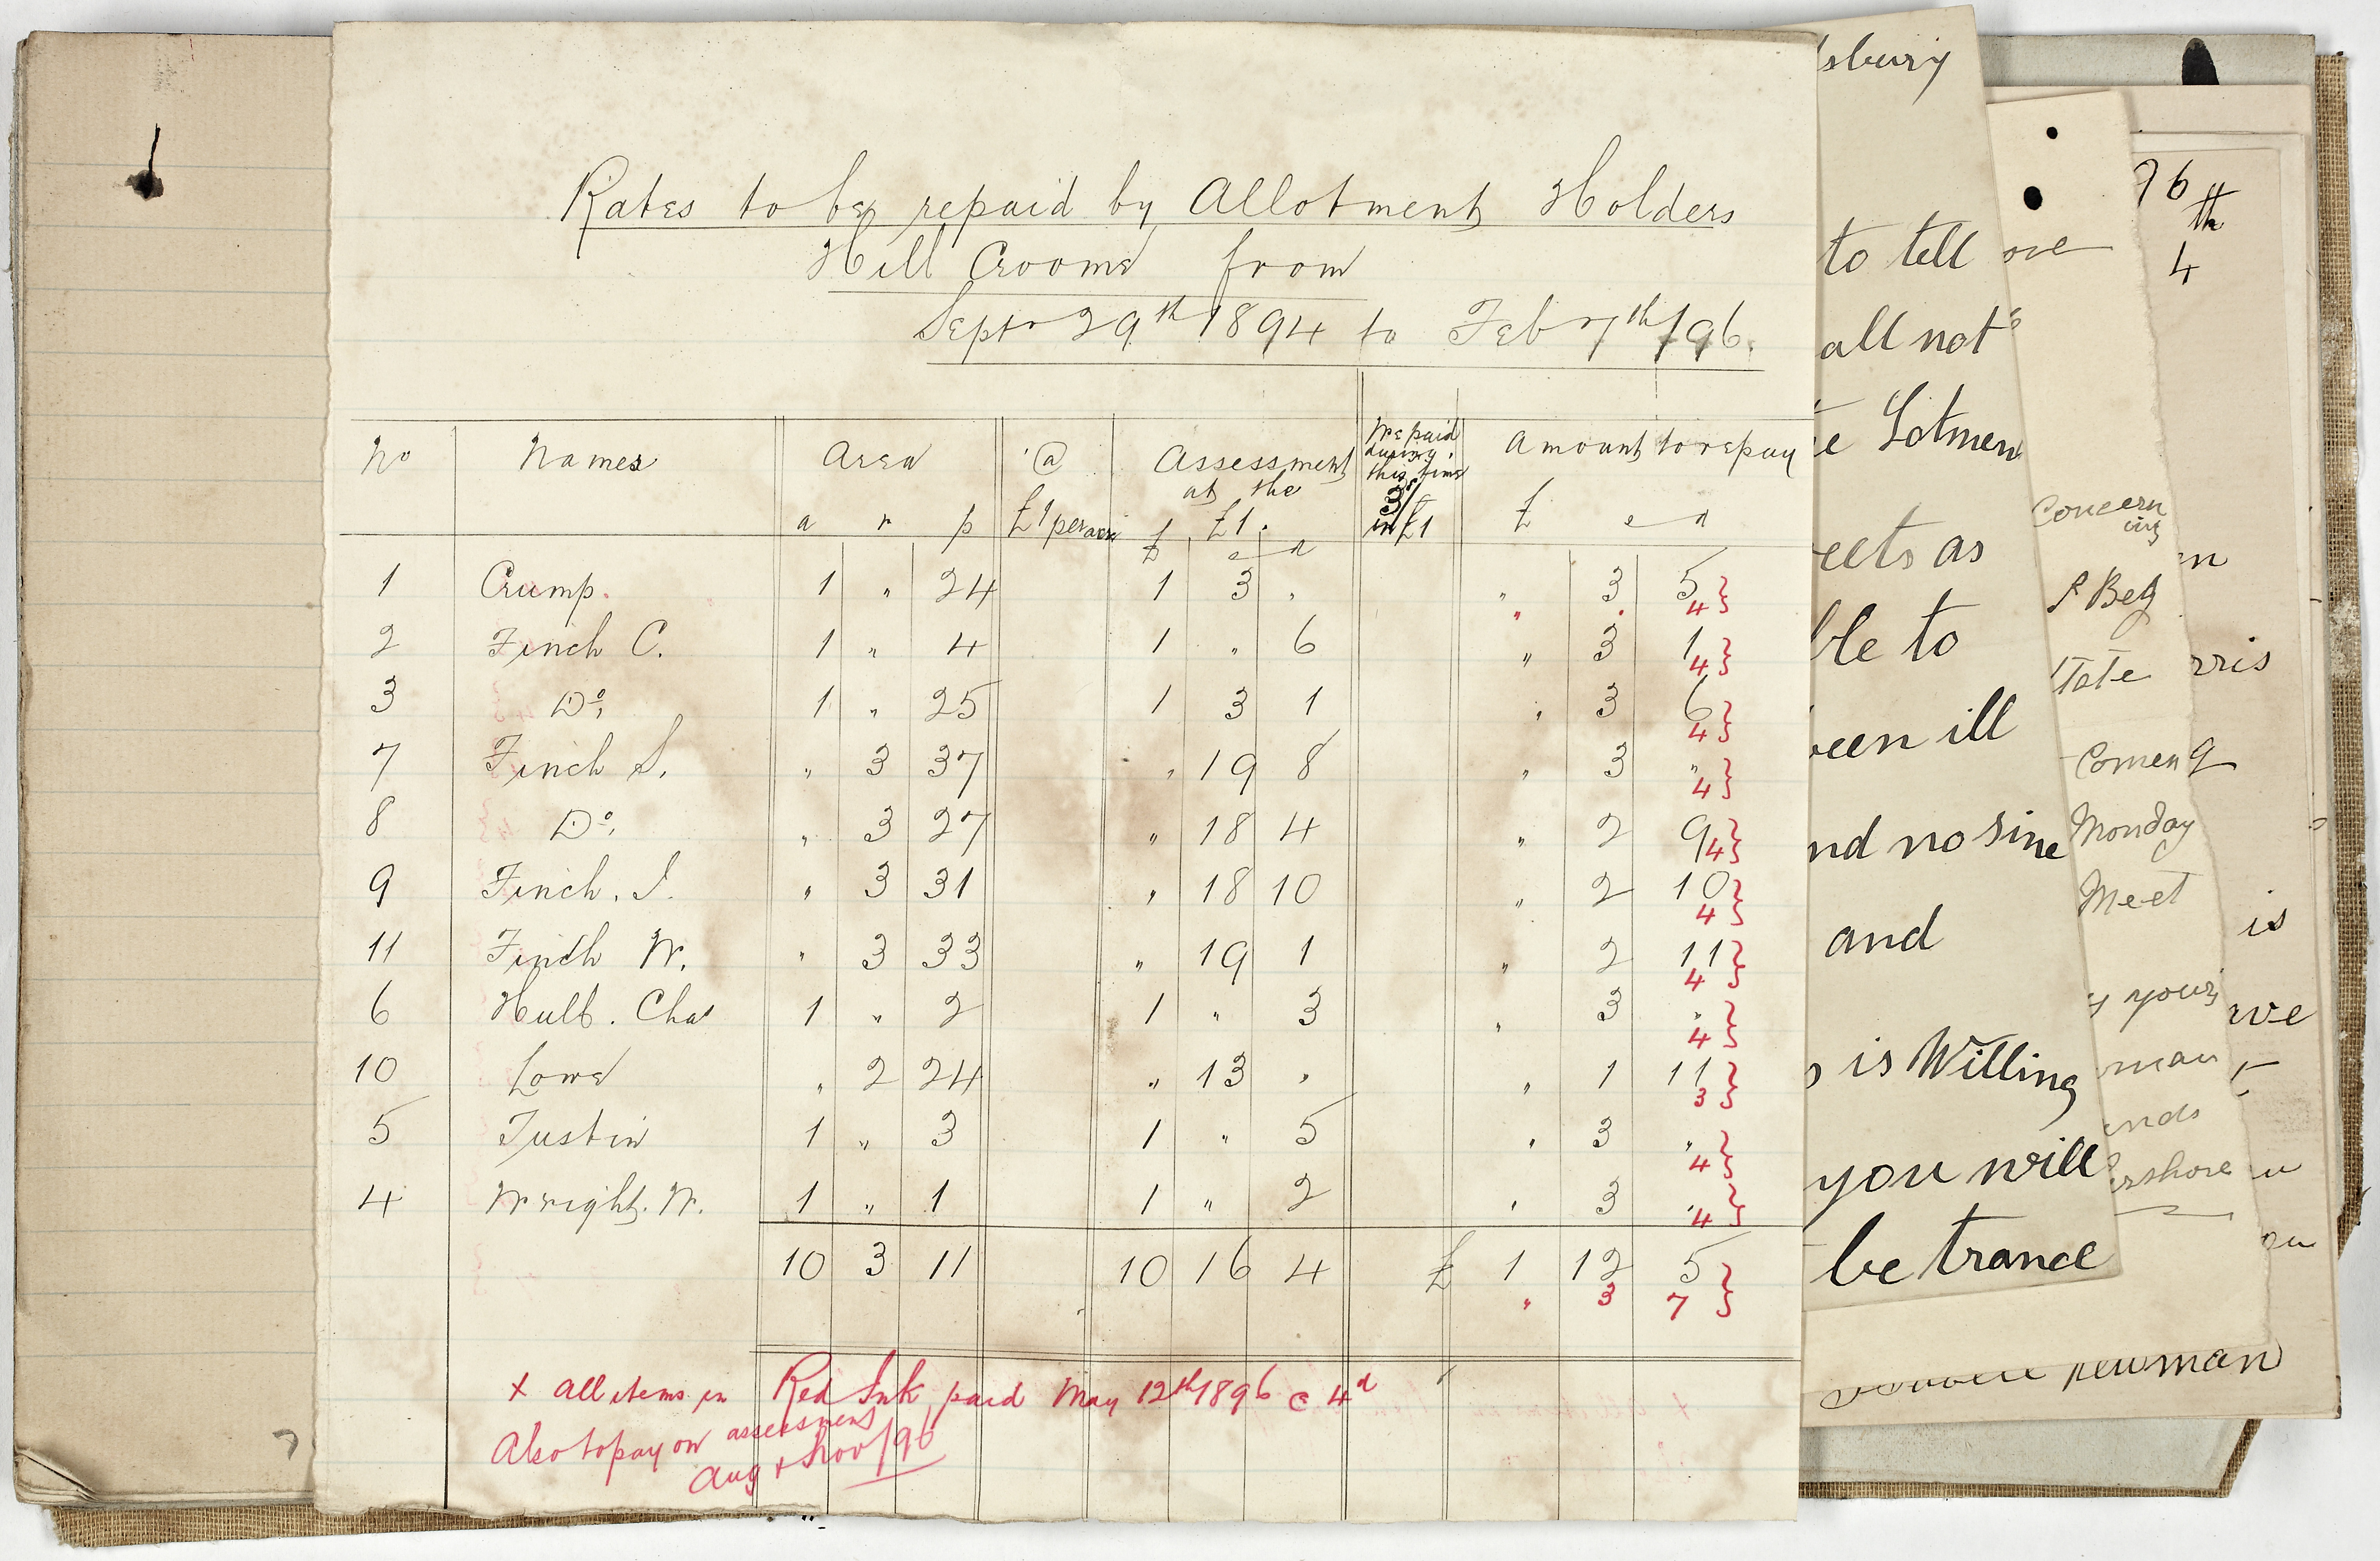 Rates to be repaid by Allotment Holders
Hill Croome from
Septr 29th 1894 to Feb 7th /96.
No Names Area @ Assessment We paid Amount to repay
at the during
this time
a r p £1 per acre £1. 3/ £ s d
£ s d in £1
1 Crump. 1 " 24 1 3 " " 3 5
" " 4
2 Finch C. 1 " 4 1 " 6 " 3 1
4
3 Do, 1 " 25 1 3 1 " 3 6
4
7 Finch S. " 3 37 " 19 8 " 3 "
4
8 Do, " 3 27 " 18 4 " 2 9
4
9 Finch. J. " 3 31 " 18 10 " 2 10
4
11 Finch W. " 3 33 " 19 1 " 2 11
4
6 Hulb. Chas 1 " 2 1 " 3 " 3 "
4
10 Lowe " 2 24 " 13 " " 1 11
3
5 Tustin 1 " 3 1 " 5 " 3 "
4
4 Wright. W. 1 " 1 1 " 2 " 3 "
4
10 3 11 10 16 4 £ 1 12 5
" 3 7
x All items in Red Ink paid May 12th 1896 @ 4d
Also to pay on assessment
Aug & Nov /96
7
sbury
to tell
all not
e Lotmen
eets as
ble to
een ill
nd no sine
and
is Willing
you will
be trance
ove
Concern
ing
P Beg
Tate
Comeng
Monday
Meet
y yours
man
ends
ershore
96
th
4
n
rris
is
we
u
ou
newman